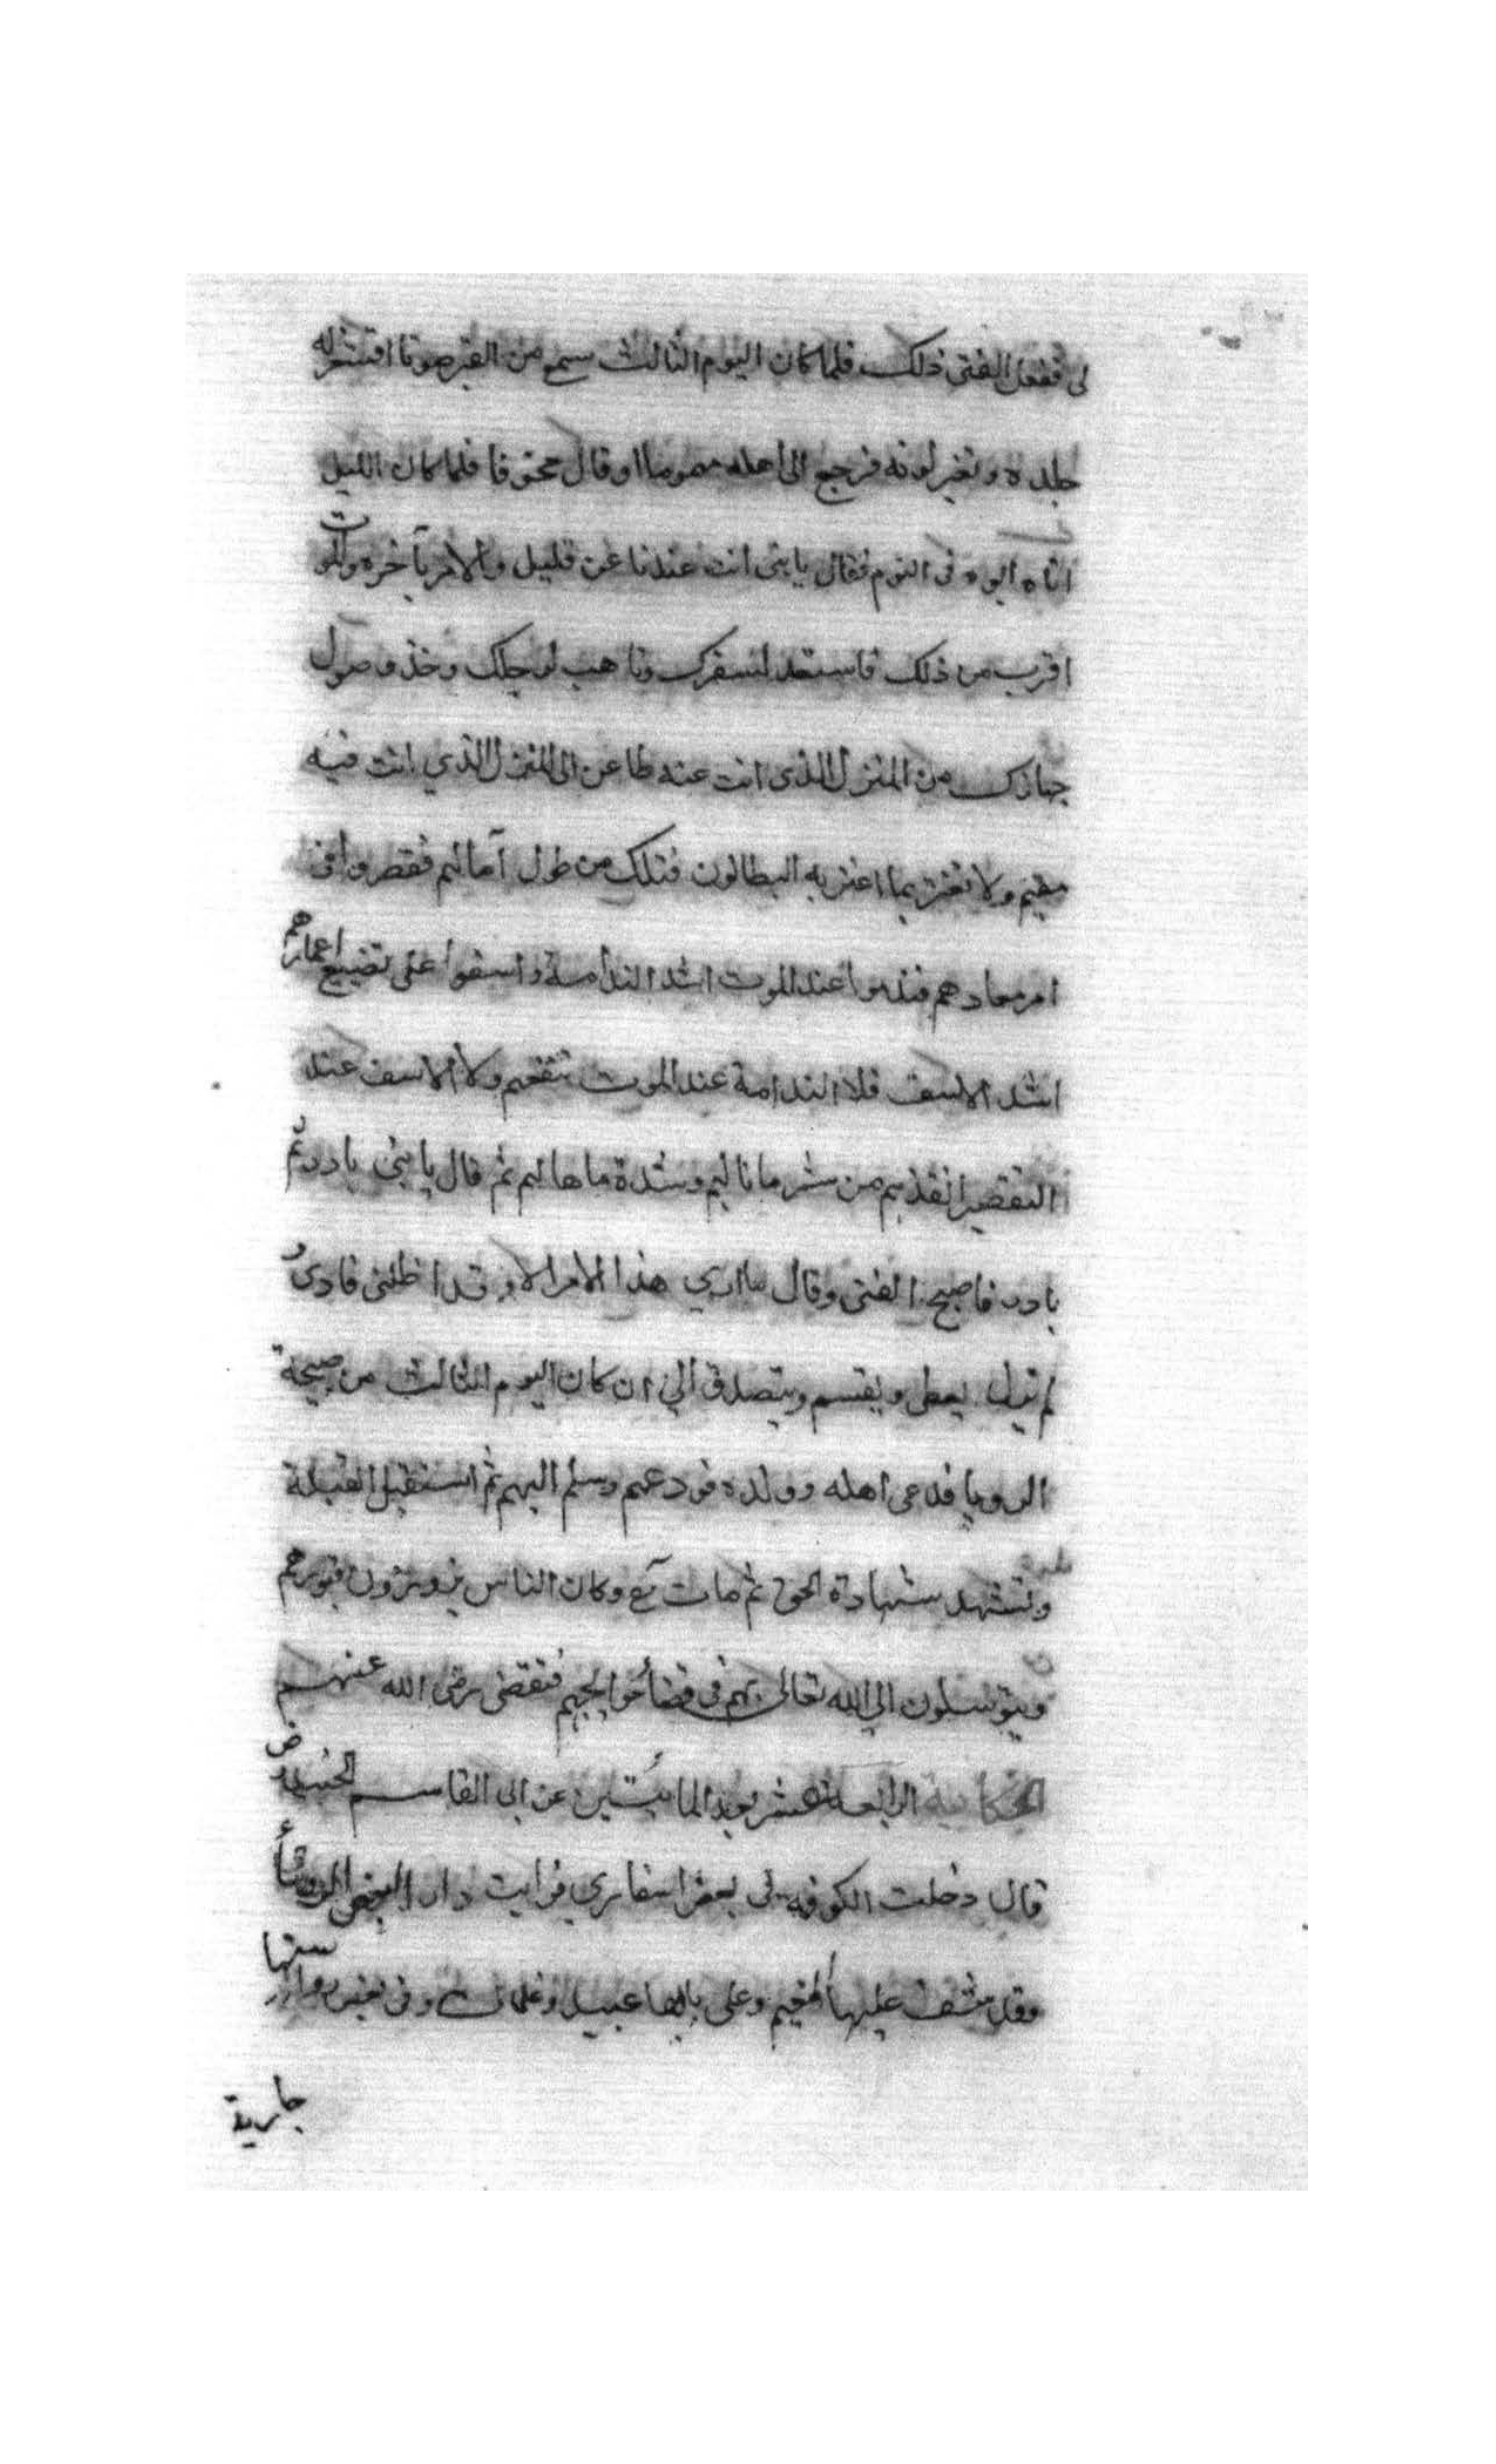 لى ففعل الفتى ذلك فلما كان اليوم الثالث سمع من القبر صوتا اقشعر له
جلده وتغير لونه فرجع الى اهله مهموما او قال محنوقا فلما كان الليل
اتاه ابوه فى النوم فقال يا بنى انت عندنا عن قليل والامر بآخره والموت
اقرب من ذلك فاستعد لسفرك وتاهب لرحيلك وخذ وحول
جهازك من المنزل الذى انت عنه ظاعن الى المنزل الذي انت فيه
مقيم ولا تغتر بما اغتر به البطالون قبلك من طول آمالهم فقصروا فى
امر معادهم فندموا عند الموت اشد الندامة واسفوا على تضييع اعمارهم
اشد الاسف فلا الندامة عند الموت تنفعهم ولا الاسف عند
التقصير انقذهم من شر ما نالهم وشدة ما هالهم ثم قال يا بنى بادر ثم
بادر فاصبح الفتى وقال ما اري هذا الامر الا وقد اظلنى
لم يزل يعطى ويقسم ويتصدق الي ان كان اليوم الثالث من صبيحة
الرويا فدعى اهله وولده فودعهم وسلم اليهم ثم استقبل القبلة
وتشهد شهادة الحق ثم مات وكان الناس يزورون قبورهم
ويتوسلون الي الله تعالى بهم فى قضا حوايجهم فتقضى رضى الله عنهم
الحكاية الرابعة عشر بعد المائتين عن ابى القاسم الجنيد رض
قال دخلت الكوفه فى بعض اسفاري فرايت دار البعض الروسا
وقد شف عليها النعيم وعلى بابها عبيد وغلمان وفى بعض رواشنها
جارية